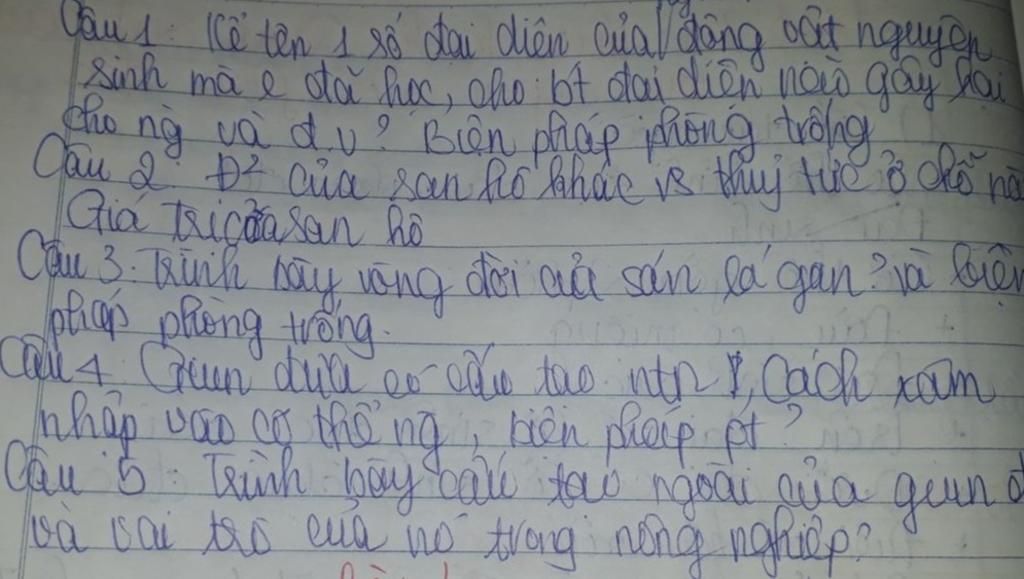 Câu 1: Kể tên 1 số đại diện của động vật nguyên
sinh mà e đã học, cho bt đại diện nào gây hại
cho ng và đ.v? Biện pháp phòng trống
Câu 2: Đ² của san hô khác vs thuỷ tức ở chỗ nà
Giá trị của san hô
Câu 3: Trình bày vòng đời của sán lá gan? và biện
pháp phòng trống.
Câu 4: Giun đũa có cấu tạo ntn, Cách xâm
nhập vào cơ thể ng, biện pháp pt?
Câu 5: Trình bày cấu tạo ngoài của giun đ
và vai trò của nó trong nông nghiệp?